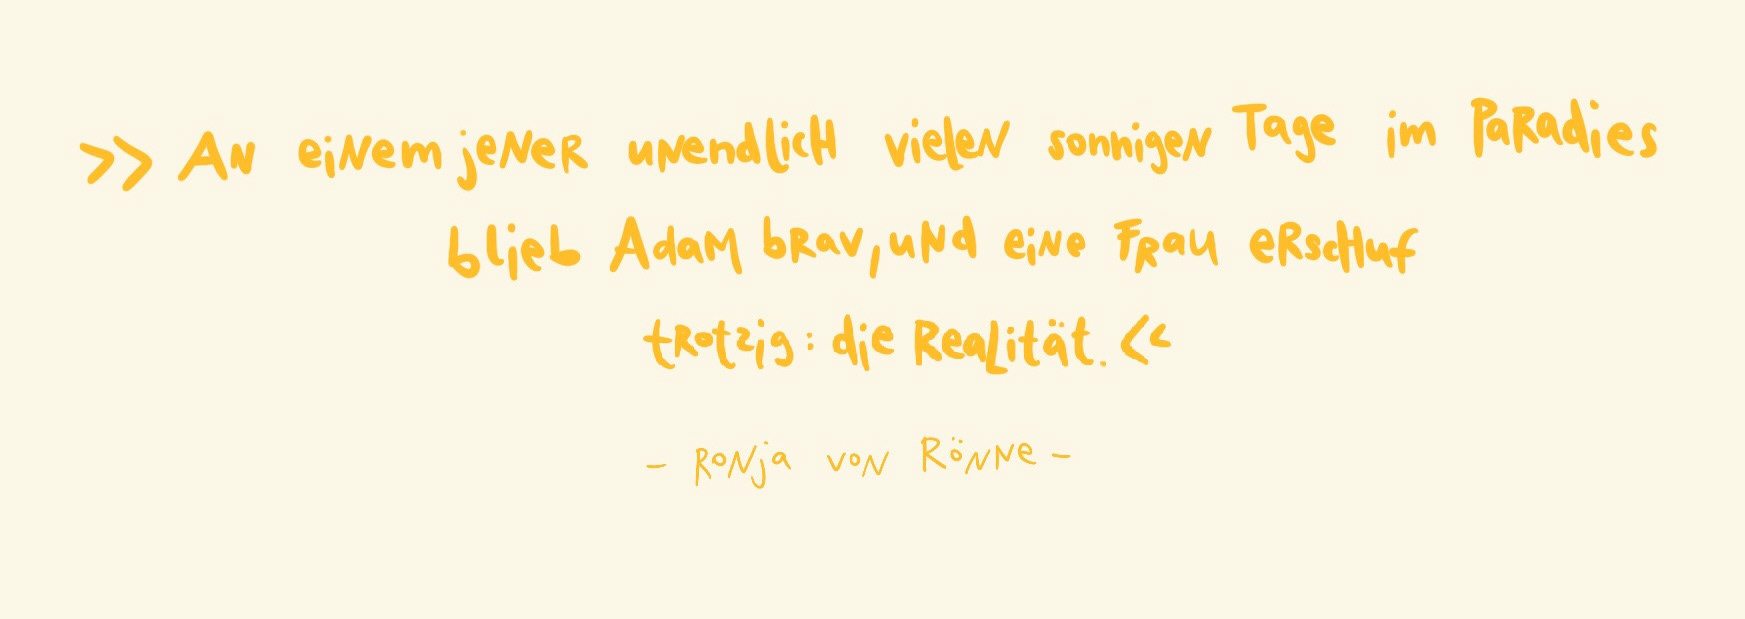 >> An einem jener unendlich vielen sonnigen Tage im Paradies
blieb Adam brav, und eine Frau erschuf
trotzig: die Realität. <<
- Ronja von Rönne -